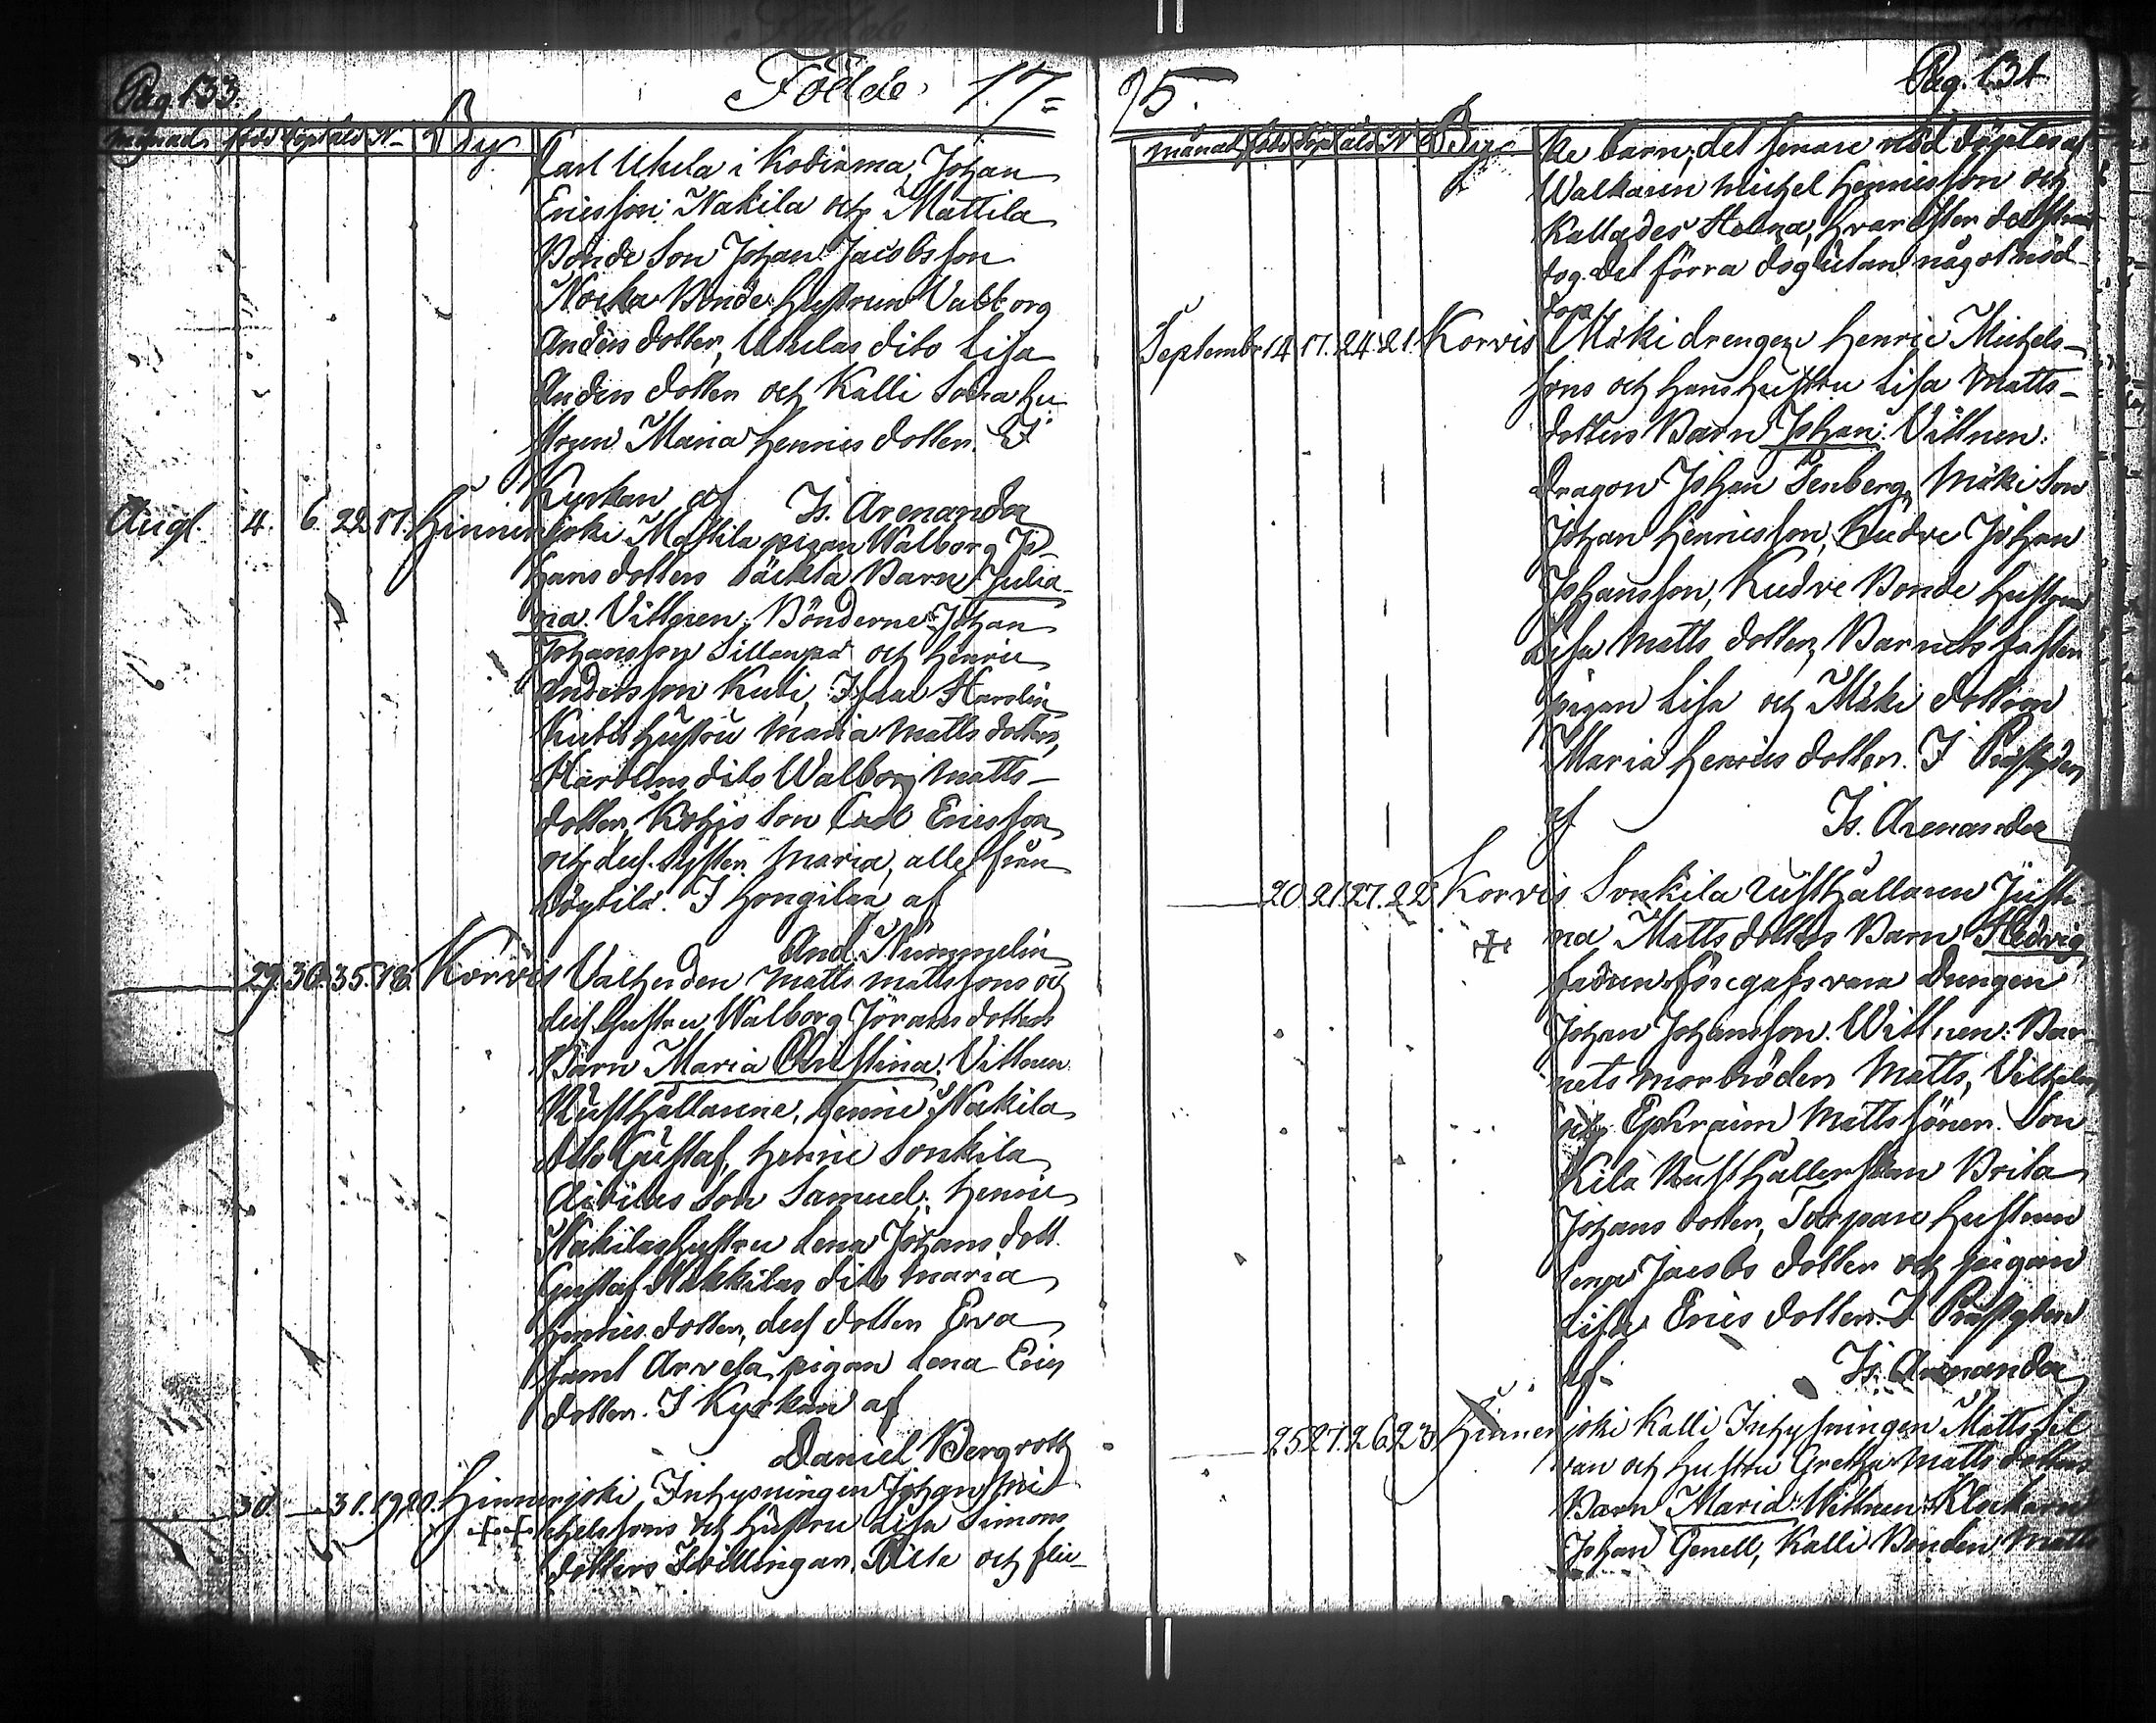 Pag. 133.
Födde 17=
månad född döpt åld. N. By
Carl Uhela i Kodisma, Johan
Ericsson Nakila och Mattila
Bonde Son Johan Jacobsson
Nocka Bonde hustrun Valborg
Anders dotter, Uhelas dito Lisa
Anders dotter och Kalli Sona hu-
strun Maria Henrics dotter. I
Kyrkan af Is. Arenander
Augt. 4. 6. 22 17. Hinnerjoki Mattila pigan Walborg Jo-
hans dotters oäckta Barn Julia-
na. Vittnen: Bönderne Johan
Johansson Sillanpä och Henric
Andersson Kubi, Isaac Harolin
Kubis hustru Maria Matts dotter,
Harolins dito Walborg Matts-
dotter, Kohis Son Carl Ericsson
och dess Syster Maria, alle från
Löytilä. I Hongilax af
And. Nummelin
29. 30. 35. 18. Korvis Valherden Matts Mattssons och
dess hustru Walborg Jörans dotters
Barn Maria Christina. Vittnen
Rusthållarene, Henric Nakila
dito Gustaf, Henric Sonkila
Son Samuel. Henric
Nakilas hustru Lena Johans dott.
Gustaf Nakkilas dito Maria
Henrics dotter, dess dotter Eva
samt Arvela pigan Lena Erics
dotter. I Kyrkan af
Daniel Bergroth
30. — 31. 19 20. Hinnerjoki Inhysningen Johan Mi-
++ chelssons och hustru Lisa Simons
dotters Twillingar. Ilicke och flic-
95. Pag. 134
månad född döpt åld N By
ke barn, det senare nöd döptes af
Walkaren Michel Henricsson och
kallades Helena, hvarefter det strax
dog. det förra dog utan något nöd-
dop.
Septembr 14 17. 24. 21. Korvis Mäki drengen Henric Michels-
sons och hans hustru Lisa Matts-
dotters Barn Johan. Vittnen:
Dragon Johan Senberg, Mäki Son
Johan Henricsson, Kudre Johan
Johansson, Kudre Bonde hustrun
Lisa Matts dotter, Barnets faster
pigan Lisa och Mäki dottren
Maria Henrics dotter. I Prästgården
af Is. Arenander
20. 21. 27. 22. Korvis Sonkila Rusthållaren Justi-
+ na Matts dotters Barn Hedvig
fadren föregafs vara Drengen
Johan Johansson. Wittnen: Bar-
nets morbröder Matts, Vilhelm
och Ephraim Mattssöner. Son-
kila Rusthållerskan Brita
Johans dotter, Torpare hustrun
Lena Jacobs dotter och pigan
Lisa Erics dotter. I Prästgården
af. Is. Arenander
25 27. 26. 23 Hinnerjoki Kalli Inhysningen Matts Sil-
van och hustru Gretha Matts dotters
Barn Maria. Wittnen: Klockaren
Johan Genell, Kalli Bonden Matts